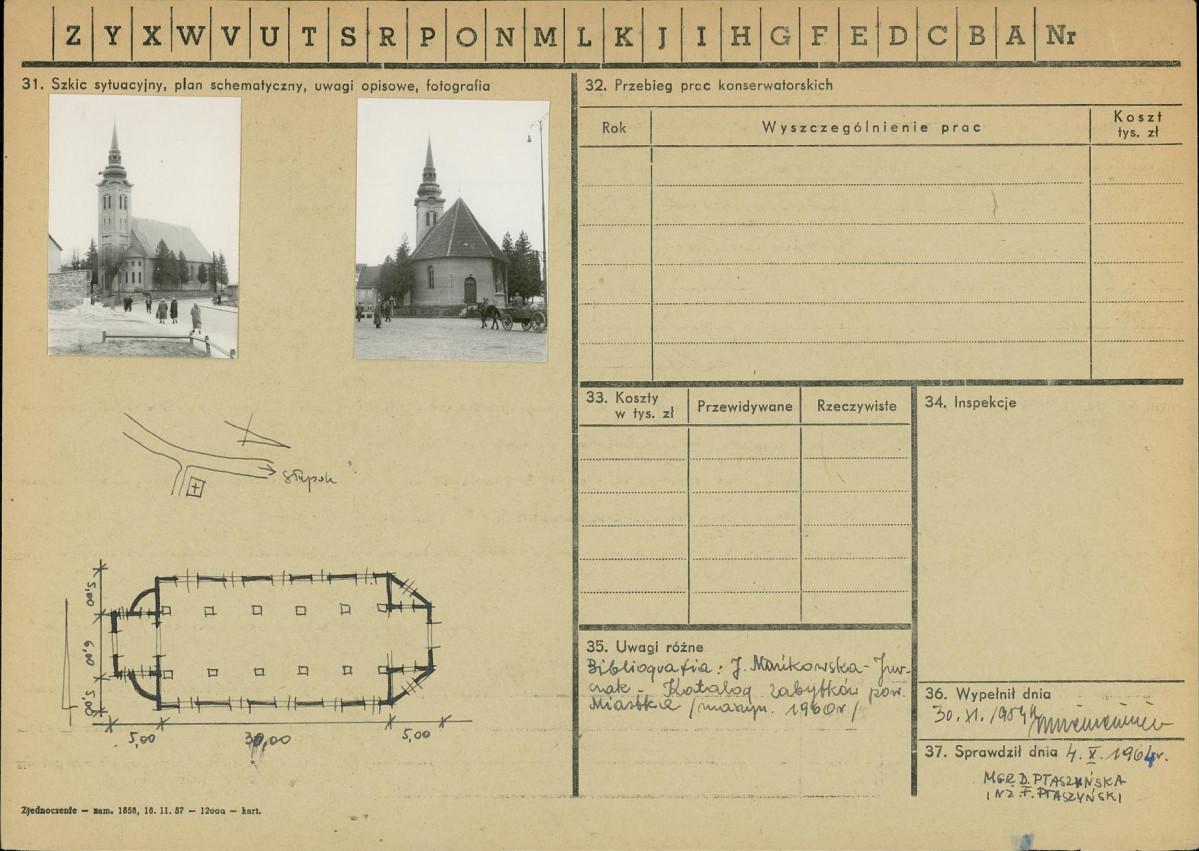 Z Y X W V U T S R P O N M L K J I H G F E D C B A Nr
31. Szkic sytuacyjny, plan schematyczny, uwagi opisowe, fotografia
słupsk
5,00
6,00
5,00
5,00
30,00
5,00
Zjednoczenie — zam. 1858, 18. 11. 57 — 12000 — kart.
32. Przebieg prac konserwatorskich
Rok
Wyszczególnienie prac
Koszt
tys. zł
33. Koszty
w tys. zł
Przewidywane
Rzeczywiste
34. Inspekcje
35. Uwagi różne
Bibliografia: J.
Katalog zabytków pow.
Miastka /maszyn. 1960r/
36. Wypełnił dnia
30. XI.
37. Sprawdził dnia 4. X. 1964r.
MGR. D. PTASZYŃSKA
INŻ. F. PTASZYŃSKI